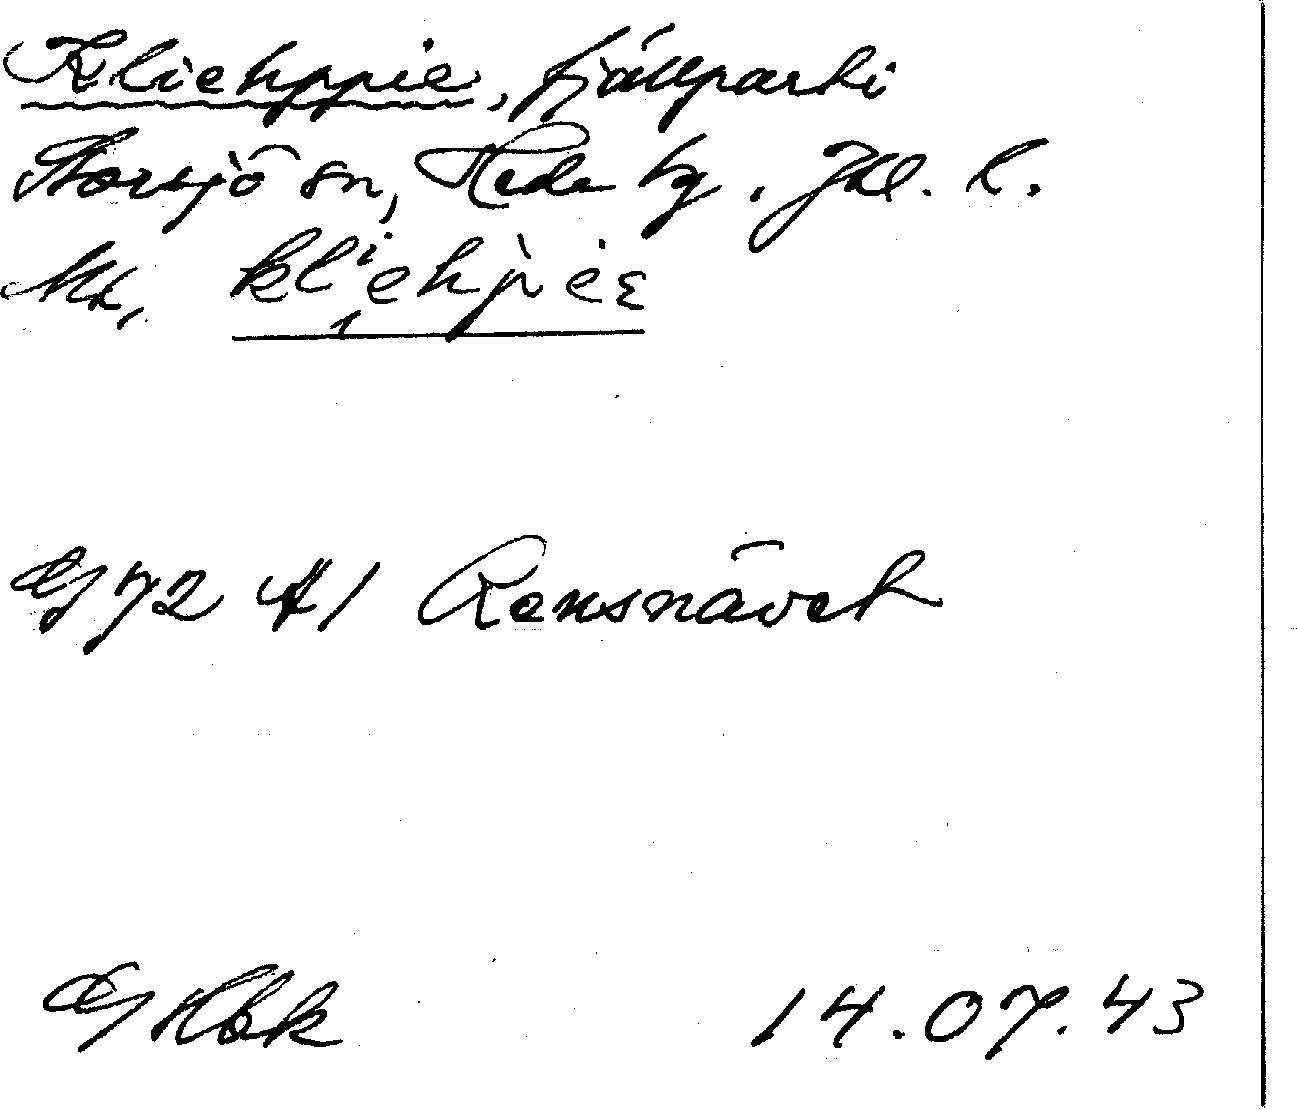 Kliehppie, fjällparti
Storsjö sn, Hede tg. Jtl. l.
kliehpie
72 A1 Rensnävet
14.07.43